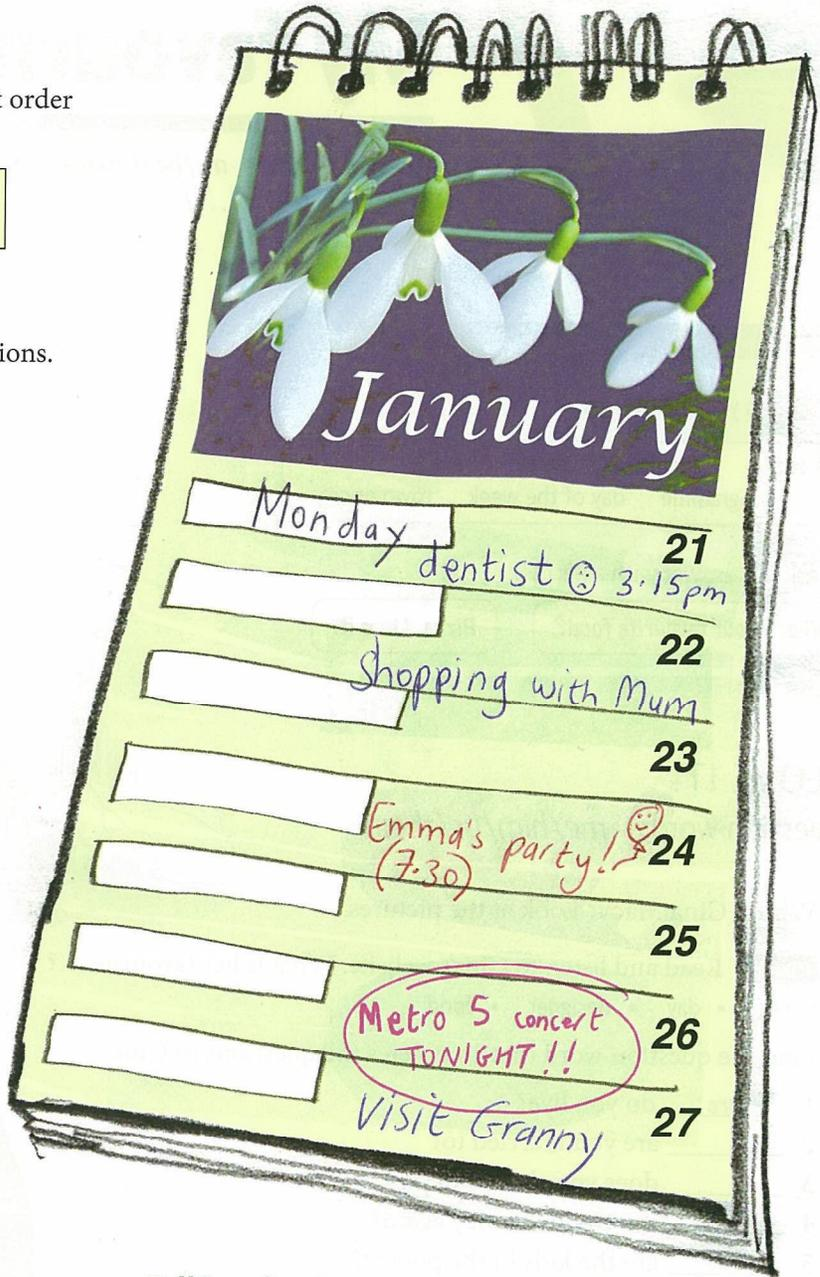 t order
ions.
January
Monday
21
dentist 3.15pm
22
Shopping with Mum
23
Emma's party! 24
(7.30)
25
Metro 5 concert
TONIGHT!!
26
Visit Granny
27